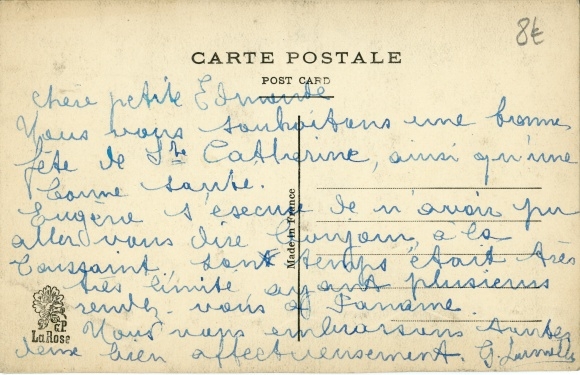 8€
CARTE POSTALE
POST CARD
chère petite Edmonde
Nous vous souhaitons une bonne
fête de Ste Catherine, ainsi qu'une
bonne santé.
Eugène s'éxcuse de n'avoir pu
aller vous dire bonjour, à la
Toussaint. son temps était très
très limité ayant plusieurs
rendez-vous à Paname.
Nous vous embrassons toutes
deux bien affectueusement. G.
Made in France
G.P
La Rose